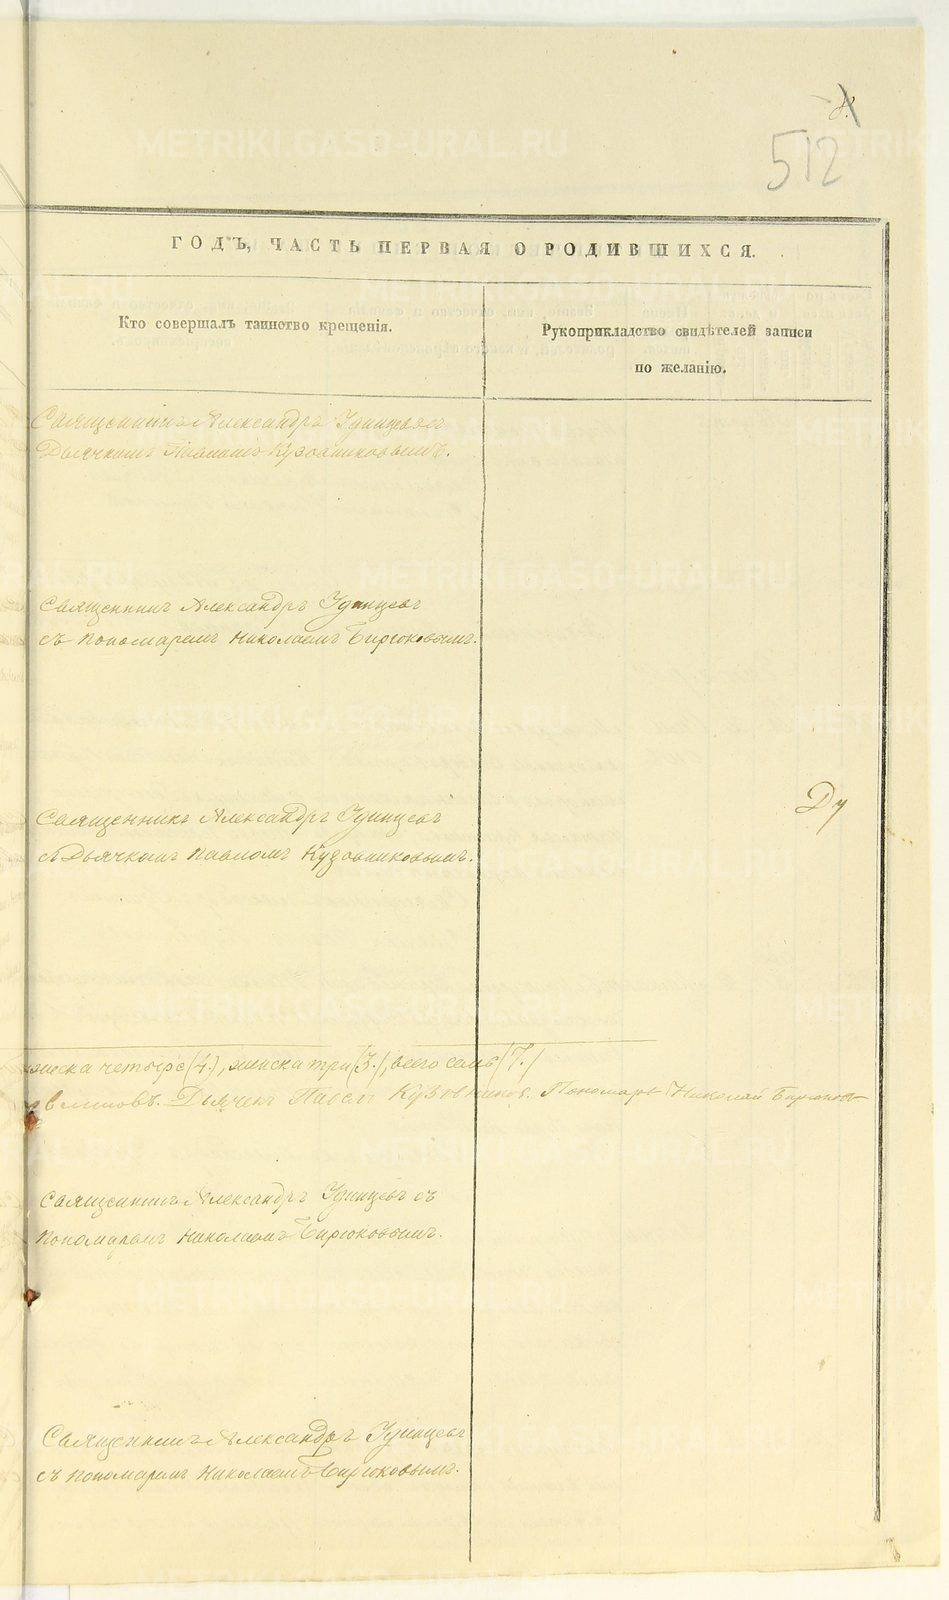 512
ГОДЪ, ЧАСТЬ ПЕРВАЯ О РОДИВШИХСЯ.
Кто совершалъ таинство крещенія.
Рукоприкладство свидѣтелей записи
по желанію.
Священникъ Александръ Удинцевъ
Дьячкомъ Павломъ Кузовниковымъ.
Священникъ Александръ Удинцевъ
съ Пономаремъ Николаемъ Бирюковымъ.
Священникъ Александръ Удинцевъ
съ Дьячкомъ Павломъ Кузовниковымъ.
Ду
четыре (4.), женска три (3.), всего семь (7.)
Дьячекъ Павелъ Кузовников. Пономарь Николай Бирюковъ
Священникъ Александръ Удинцевъ съ
Пономаремъ Николаемъ Бирюковымъ.
Священникъ Александръ Удинцевъ
съ Пономаремъ Николаемъ Бирюковымъ.
METRIKI.GASO-URAL.RU